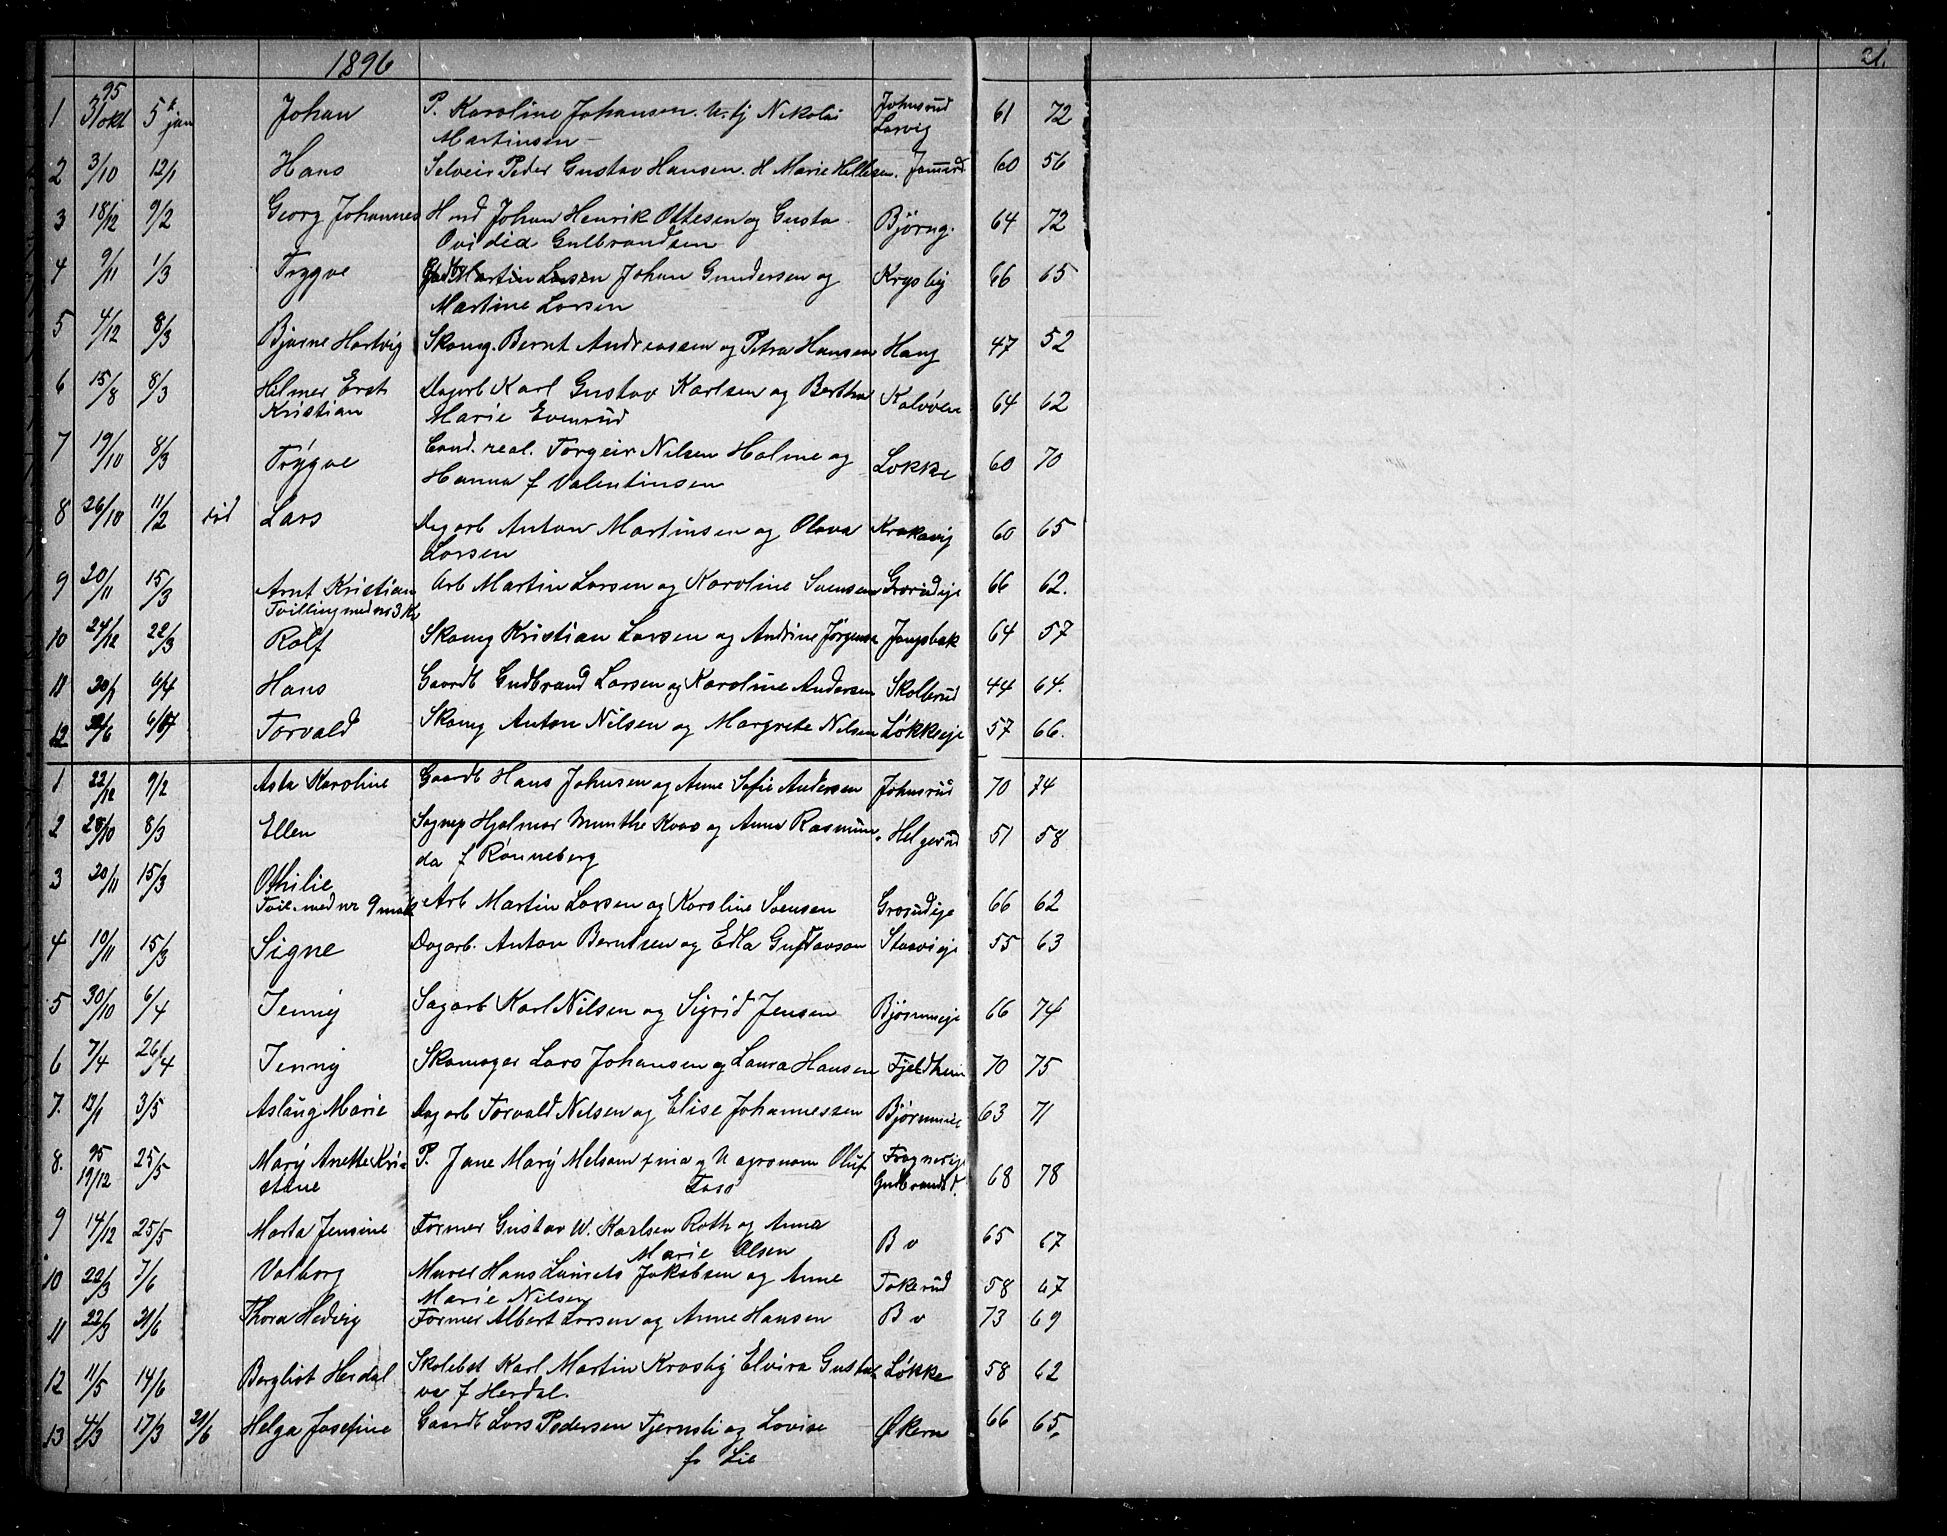 1896 21.
1 95 31/okt 5 jan Johan P. Karoline Johansen. U. tj Nikolai Johnsrud 61 72
Martinsen – Larvig
2 3/10 12/1 Hans Selveier Peder Gustav Hansen. H Marie Hellesen. 60 56
3 18/12 9/2 Georg Johannes Hmd Johan Henrik Ottesen og Gusta Bjørng. 64 72
Ovidia Gulbrandsen
4 9/11 1/3 Trygve Johan Gundersen og Krysby 66 65
Martine Larsen
5 4/12 8/3 Bjarne Hartvig Skomg. Bernt Andreassen og Petra Hansen Haug 47 52
6 15/8 8/3 Hilmer Dagarb Karl Gustav Karlsen og Bertha Kalvøen 64 62
Kristian Marie Evensrud
7 19/10 8/3 Trygve Cand. real. Torgeir Nilsen Holme og Løkke 60 70
Hanna f Valentinsen
8 26/10 11/2 død Lars Dagarb Anton Martinsen og Olava 60 65
Larsen
9 20/11 15/3 Arnt Kristian Arb Martin Larsen og Karoline Svensen 66 62.
Tvilling med nr 3 Kv
10 24/12 22/3 Rolf Skomg Kristian Larsen og Andrine Jørgensen Jongsbak 64 57
11 6/4 Hans Gaardb Gudbrand Larsen og Karoline Andersen Skollerud 44 64.
12 Torvald Skomg Anton Nilsen og Margrete Nilsen Løkkeeje 57 66.
1 22/12 9/2 Asta Karoline Gaardb Hans Johnsen og Anne Sofie Andersen Johnsrud 70 74
2 28/10 8/3 Ellen Sognep Hjalmar Munthe Kaas og Anna Rasmun- Helgerud 51 58
da f Rønneberg
3 20/11 15/3 Othilie
Tvil. med nr 9 mak Arb Martin Larsen og Karoline Svensen 66 62
4 10/11 15/3 Signe Dagarb. Anton Berntsen og Edla Gustavson 55 63
5 30/10 6/4 Jenny Sagarb Karl Nilsen og Sigrid Jensen 66 74
6 7/4 26/4 Jenny Skomager Lars Johansen og Laura Hansen Fjeldheim 70 75
7. 13/1 3/5 Aslaug Marie Dagarb Torvald Nilsen og Elise Johannessen 63 71
8. 95 19/12 25/5 Mary Anette Kri= P. Jane Mary Melsom og U agronom Oluf 68 78
stine
9 14/12 25/5 Marta Jensine Former Gustav W. Karlsen Roth og Anna B v 65 67
Marie Olsen
10 22/3 7/6 Valborg Murer Hans Laurits Jakobsen og Anne Tokerud 58 67
Marie Nilsen
11 22/3 21/6 Thora Hedvig Former Albert Larsen og Anne Hansen B v 73 69
12 11/5 14/6 Bergliot Herdal Skolebst Karl Martin Krosby Elvira Gusta= Løkke 58 62
va f Herdal.
13 4/3 17/3 21/6 Helga Josefine Gaardb Lars Pedersen Tjernsli og Lovise Økern 66 65,
f. Lie